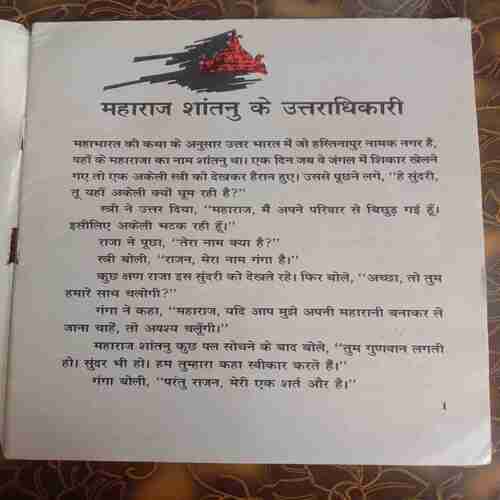 महाराज शांतनु के उत्तराधिकारी
महाभारत की कथा के अनुसार उत्तर भारत में जो हस्तिनापुर नामक नगर है,
वहाँ के महाराजा का नाम शांतनु था। एक दिन जब वे जंगल में शिकार खेलने
गए तो एक अकेली स्त्री को देखकर हैरान हुए। उससे पूछने लगे, “हे सुंदरी,
तू यहाँ अकेली क्यों घूम रही है?”
स्त्री ने उत्तर दिया, “महाराज, मैं अपने परिवार से बिछुड़ गई हूँ।
इसीलिए अकेली भटक रही हूँ।”
राजा ने पूछा, “तेरा नाम क्या है?”
स्त्री बोली, “राजन, मेरा नाम गंगा है।”
कुछ क्षण राजा इस सुंदरी को देखते रहे। फिर बोले, “अच्छा, तो तुम
हमारे साथ चलोगी?”
गंगा ने कहा, “महाराज, यदि आप मुझे अपनी महारानी बनाकर ले
जाना चाहें, तो अवश्य चलूँगी।”
महाराज शांतनु कुछ पल सोचने के बाद बोले, “तुम गुणवान लगती
हो। सुंदर भी हो। हम तुम्हारा कहा स्वीकार करते हैं।”
गंगा बोली, “परंतु राजन, मेरी एक शर्त और है।”
1